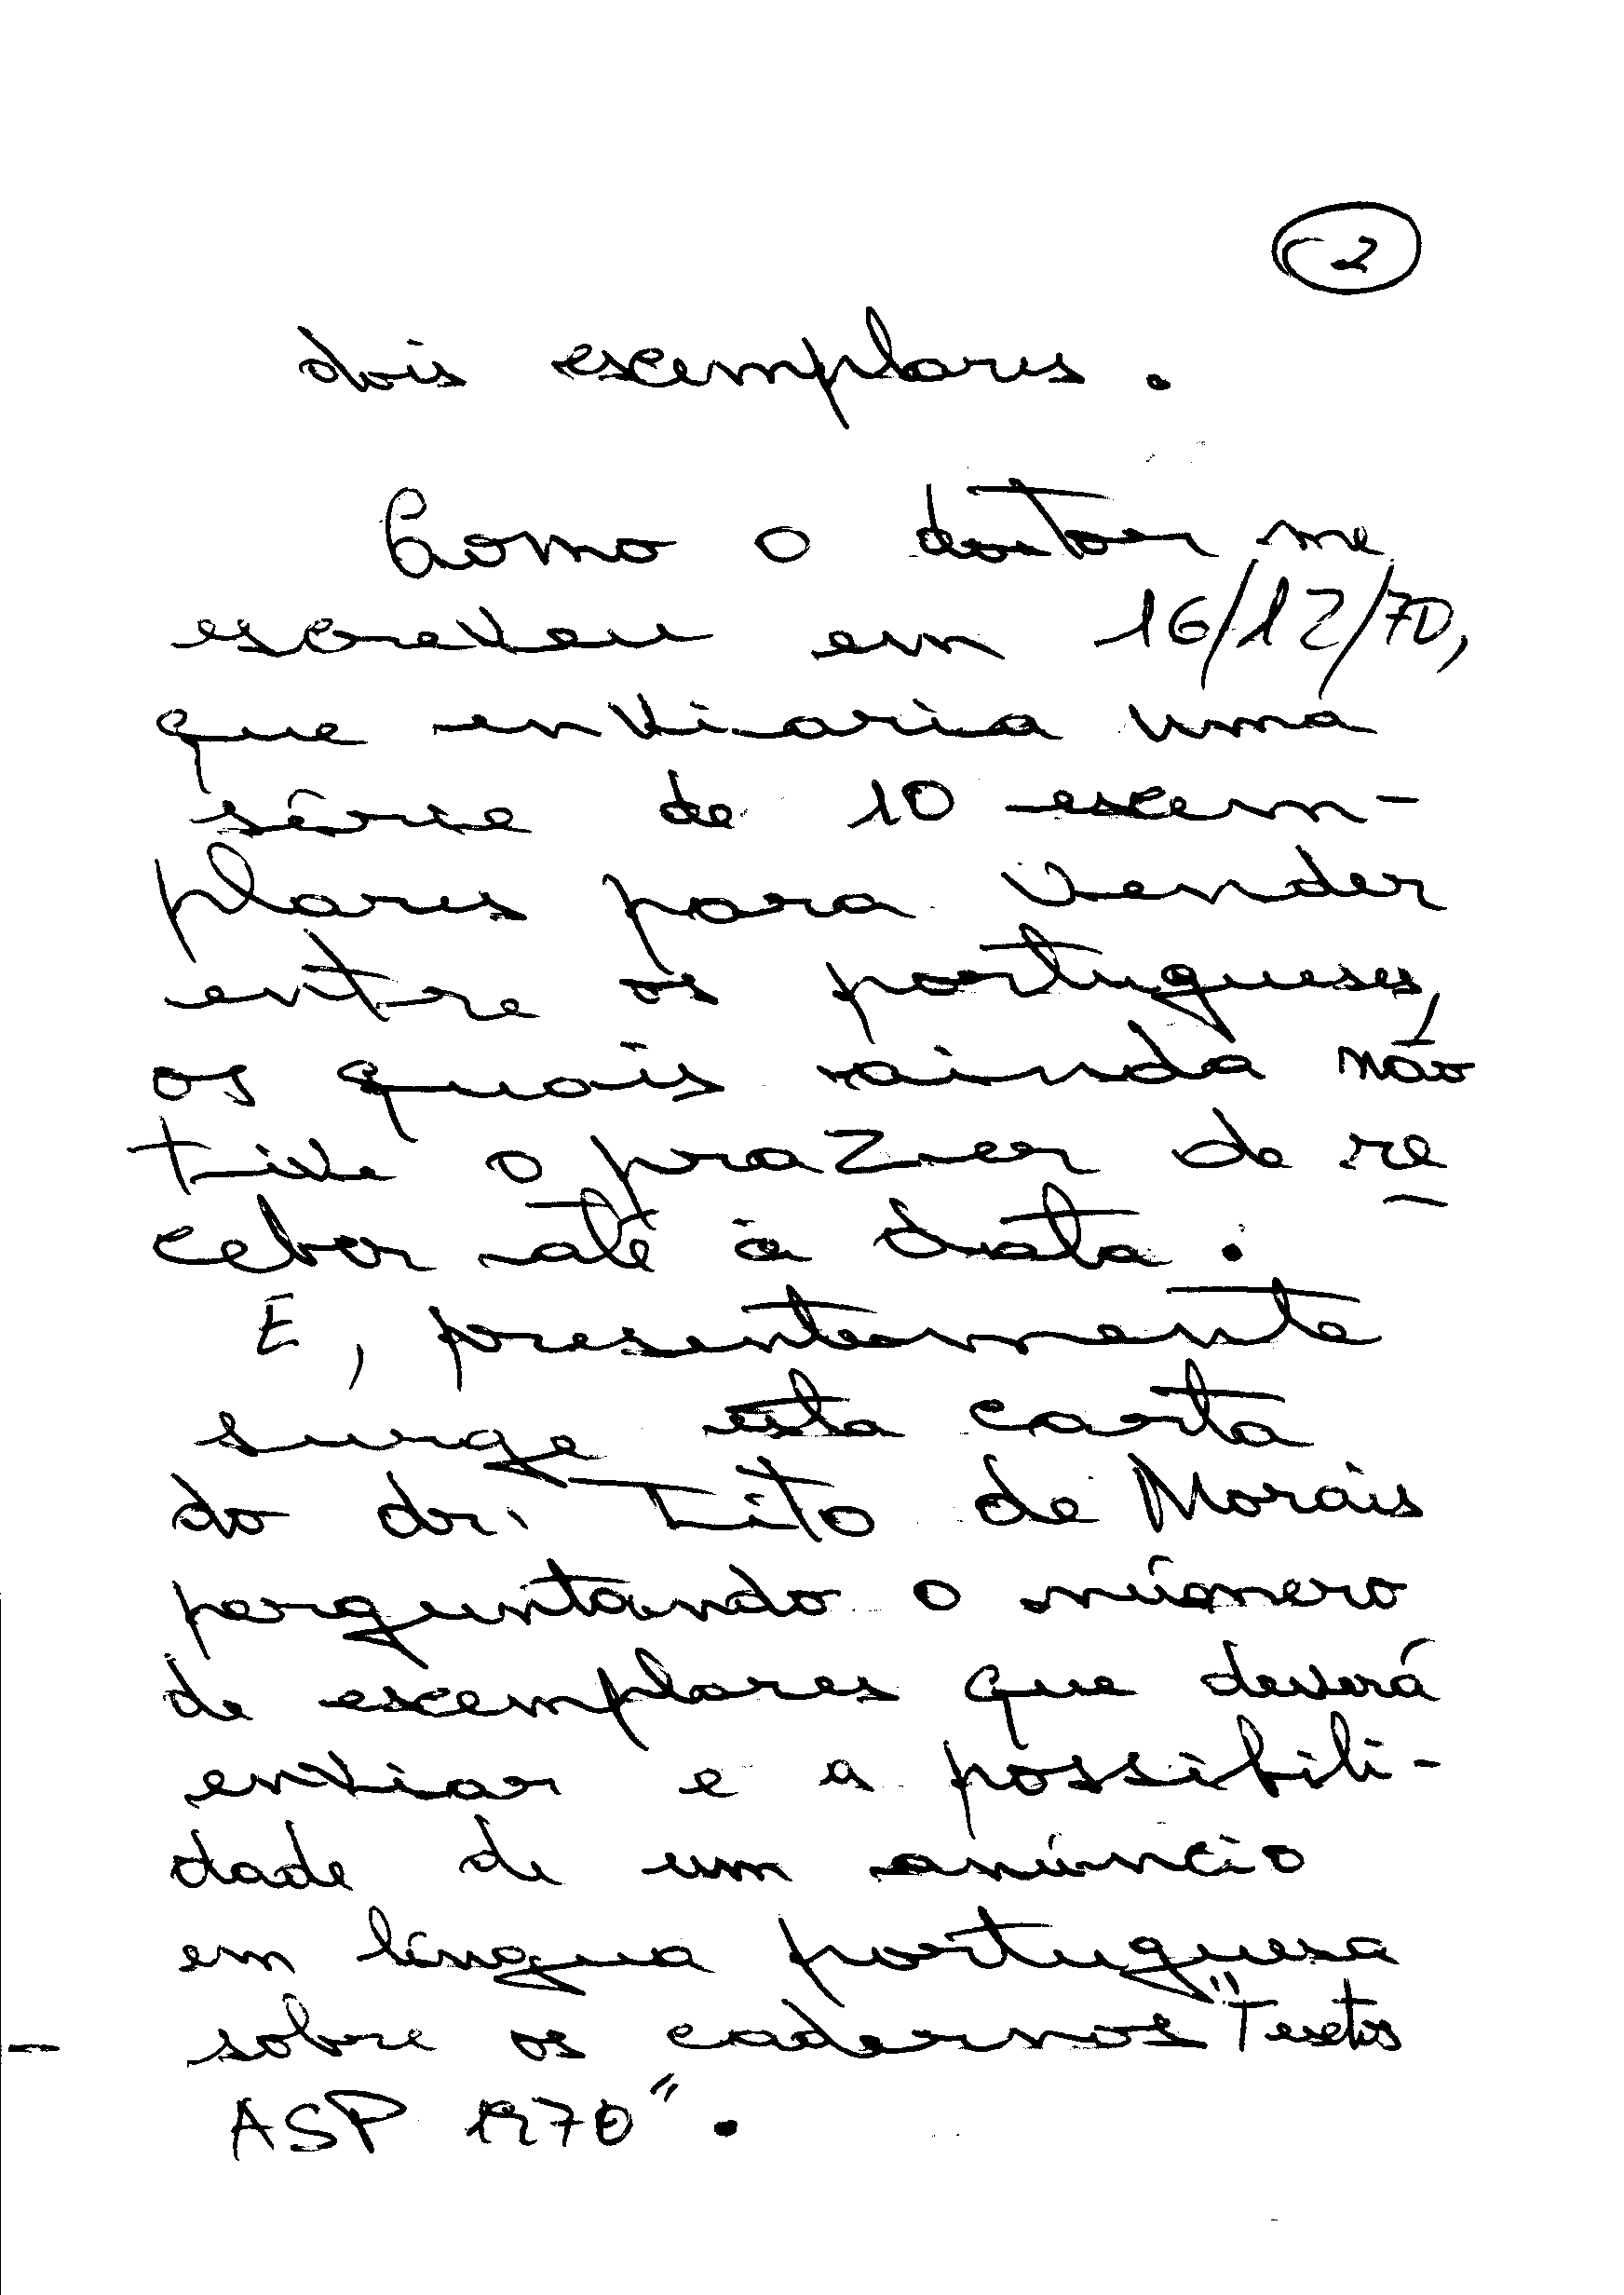 2
dois exemplares.
Como o doutor me
escreveu em 16/12/70,
que enviaria uma
série de 10 exem-
plares para vender
entre os portugueses,
os quais ainda não
tive o prazer de re
ceber até à data.
E, presentemente
surge esta carta
do dr. Tito de Morais
perguntando o número
de exemplares que deverá
enviar e a possibili-
dade de um anúncio
em língua portuguesa
sobre os cadernos "Textos
ASP 1970".